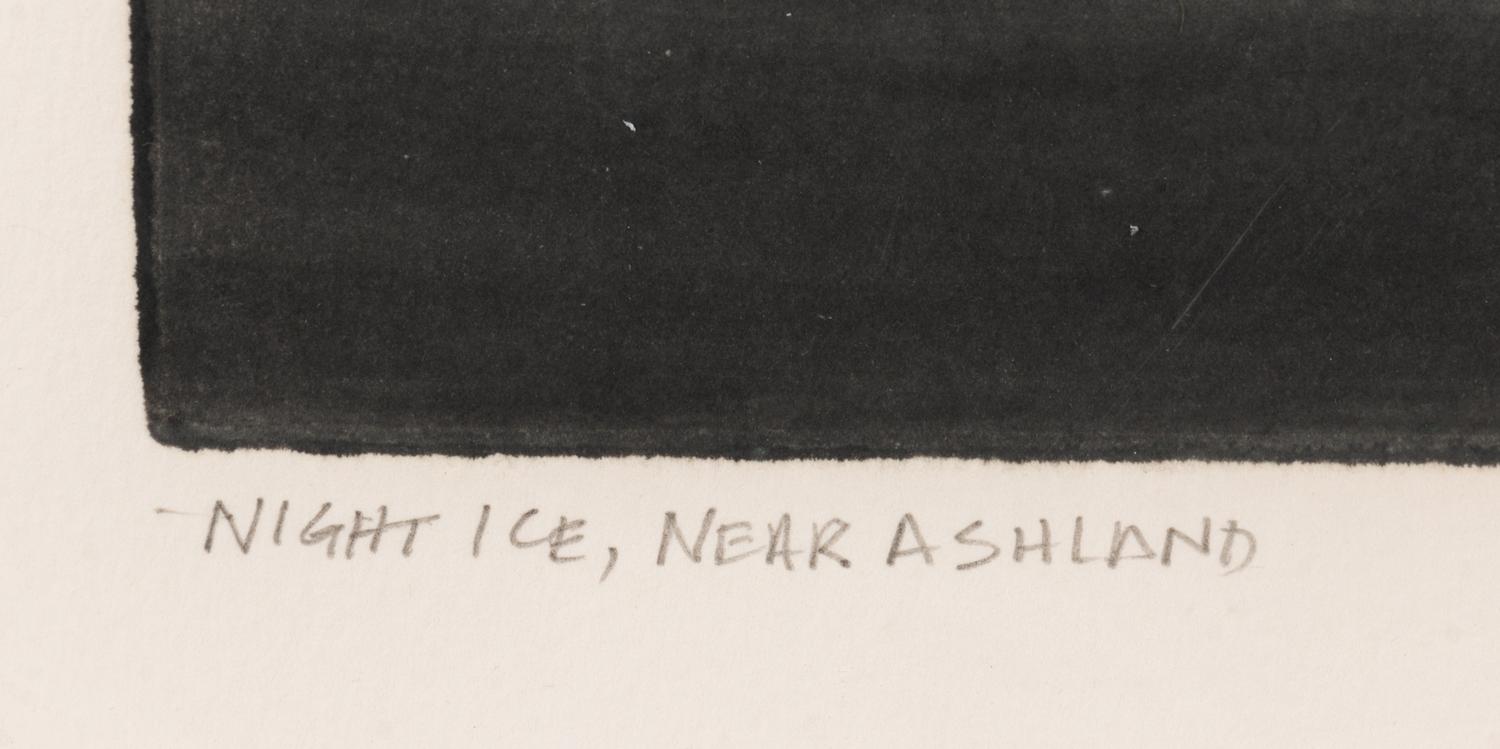 NIGHT ICE, NEAR ASHLAND